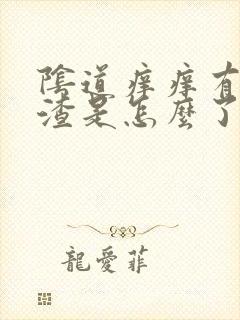 陰道痒痒有
渣是怎麼了
龍愛菲